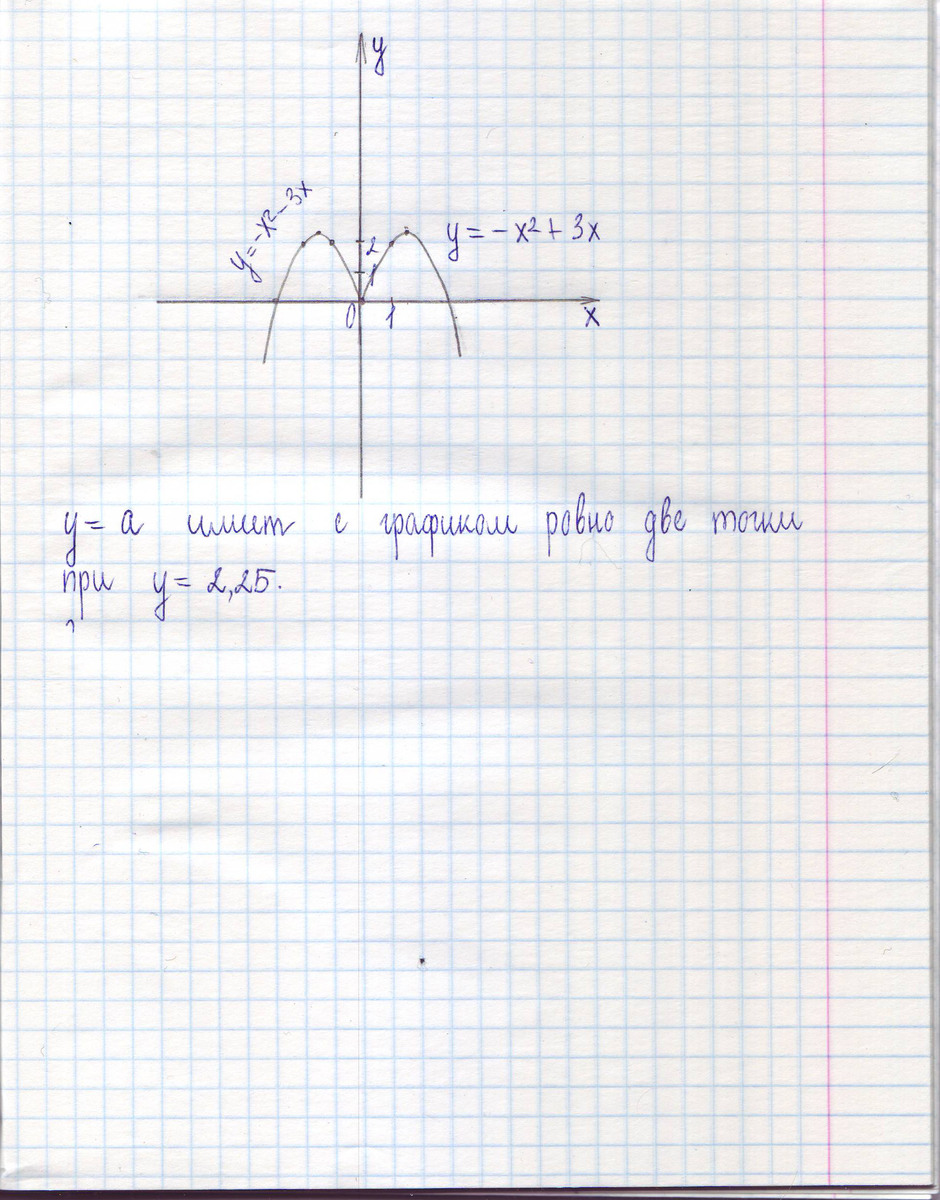 y
y=-x²-3x
y = - x² + 3x
2
1
0 1 x
y = a имеет с графиком ровно две точки
при y = 2,25.